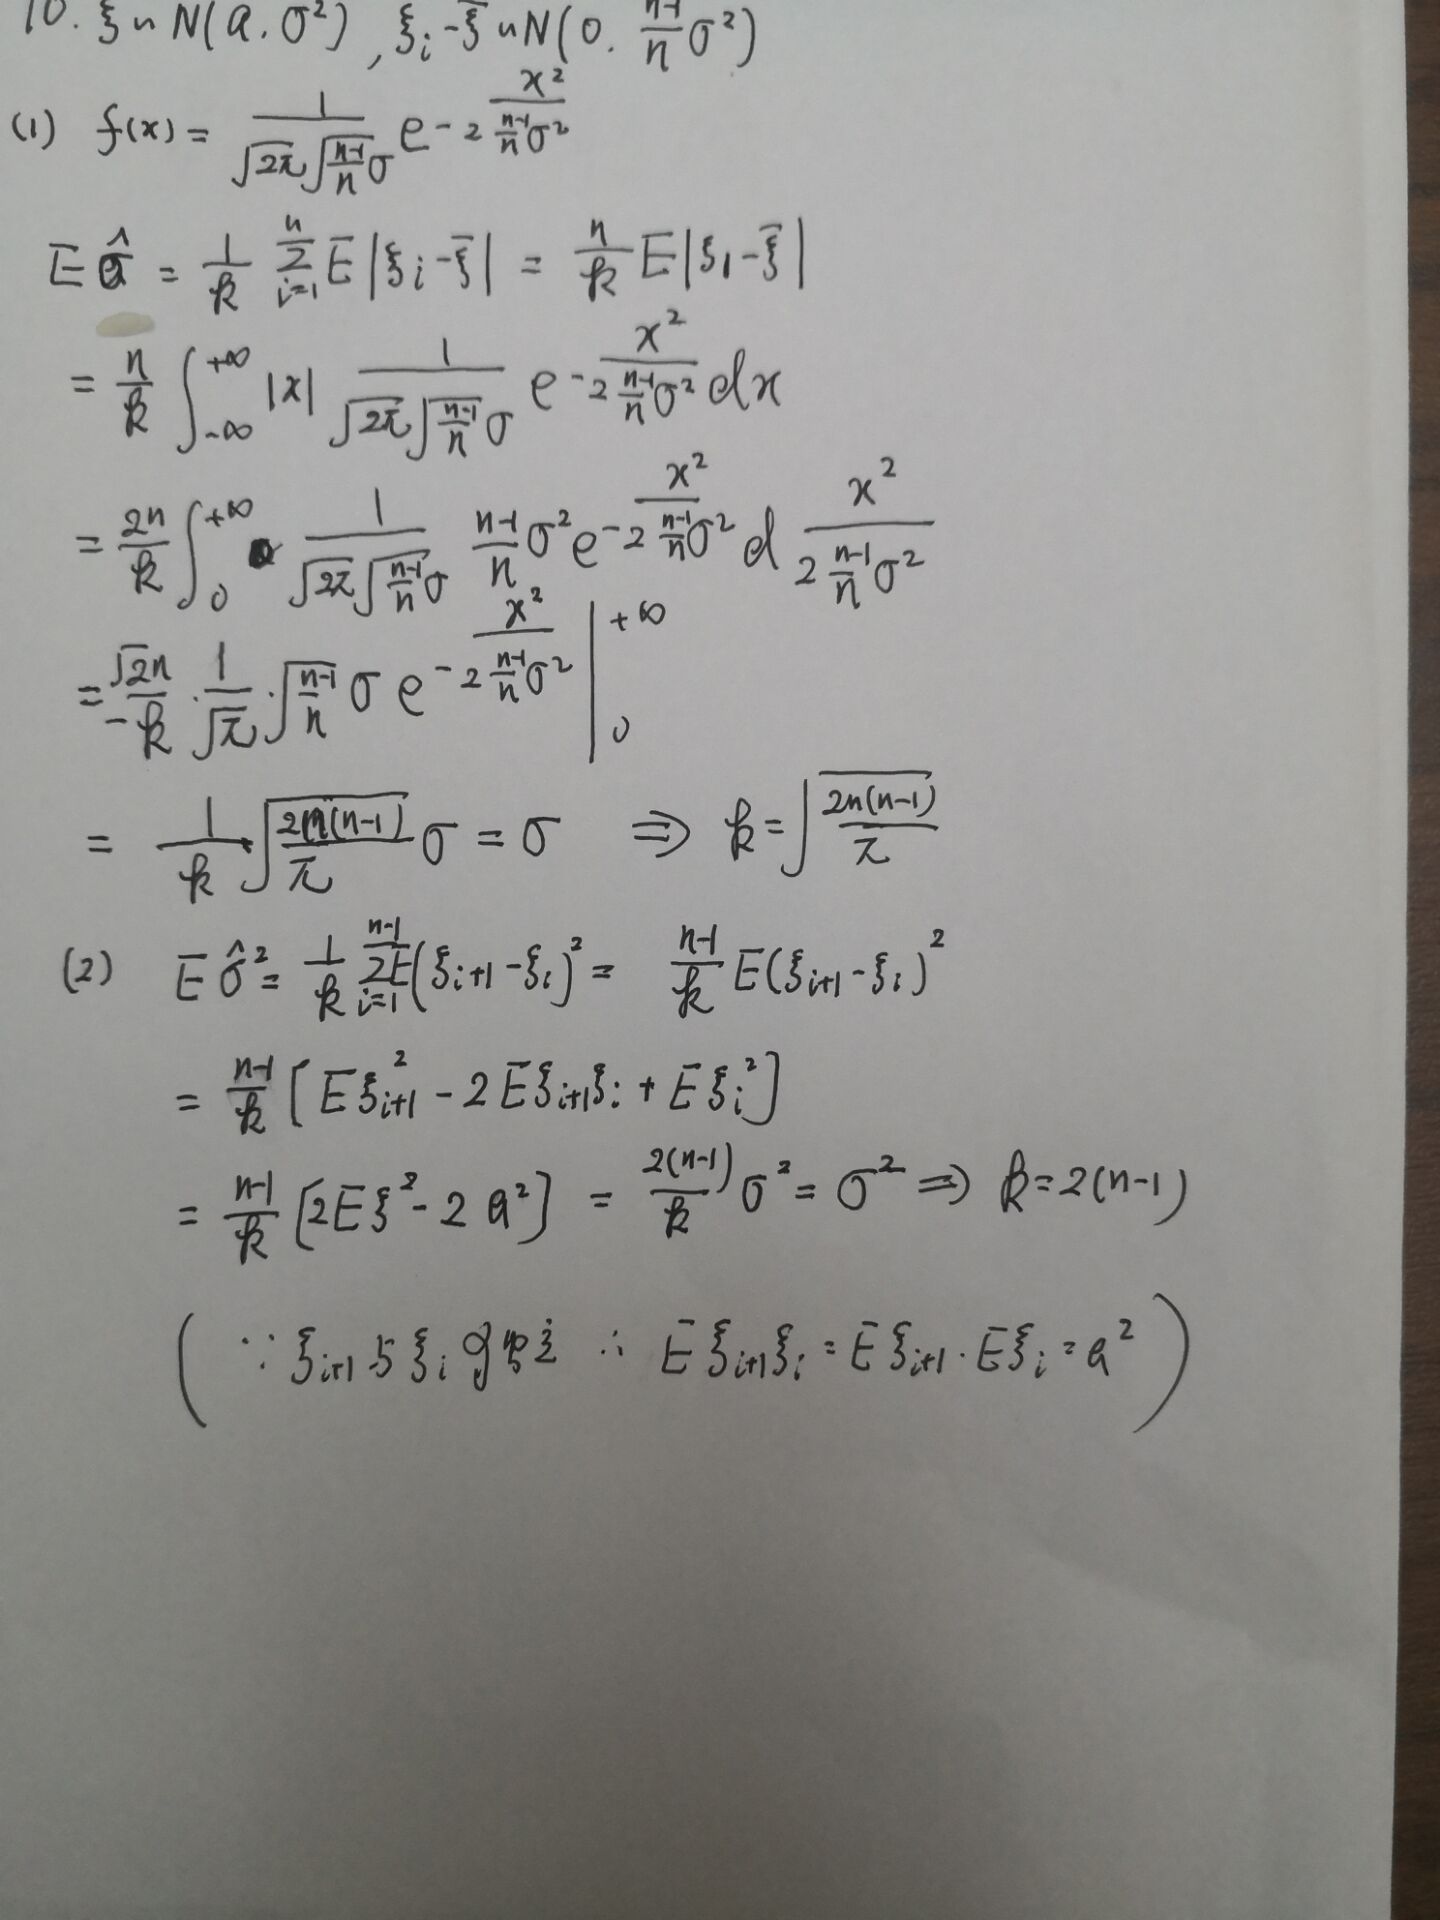 10. ξ ~ N(a, σ²), ξᵢ - ξ̄ ~ N(0, \frac{n-1}{n}σ²)
(1) f(x) = \frac{1}{\sqrt{2π}\sqrt{\frac{n-1}{n}}σ} e^{-\frac{x²}{2\frac{n-1}{n}σ²}}
E\hat{σ} = \frac{1}{k} \sum_{i=1}^{n} E|ξᵢ - ξ̄| = \frac{n}{k} E|ξ₁ - ξ̄|
= \frac{n}{k} \int_{-∞}^{+∞} |x| \frac{1}{\sqrt{2π}\sqrt{\frac{n-1}{n}}σ} e^{-\frac{x²}{2\frac{n-1}{n}σ²}} dx
= \frac{2n}{k} \int_{0}^{+∞} \frac{1}{\sqrt{2π}\sqrt{\frac{n-1}{n}}σ} \frac{n-1}{n}σ² e^{-\frac{x²}{2\frac{n-1}{n}σ²}} d\frac{x²}{2\frac{n-1}{n}σ²}
= -\frac{\sqrt{2}n}{k} · \frac{1}{\sqrt{π}} · \sqrt{\frac{n-1}{n}} σ e^{-\frac{x²}{2\frac{n-1}{n}σ²}} |_{0}^{+∞}
= \frac{1}{k}\sqrt{\frac{2n(n-1)}{π}} σ = σ ⇒ k = \sqrt{\frac{2n(n-1)}{π}}
(2) E\hat{σ}² = \frac{1}{k} \sum_{i=1}^{n-1} E(ξ_{i+1} - ξᵢ)² = \frac{n-1}{k} E(ξ_{i+1} - ξᵢ)²
= \frac{n-1}{k} [Eξ²_{i+1} - 2Eξ_{i+1}ξᵢ + Eξᵢ²]
= \frac{n-1}{k} [2Eξ² - 2a²] = \frac{2(n-1)}{k} σ² = σ² ⇒ k = 2(n-1)
(∵ ξ_{i+1} 与 ξᵢ 独立 ∴ Eξ_{i+1}ξᵢ = Eξ_{i+1} · Eξᵢ = a²)